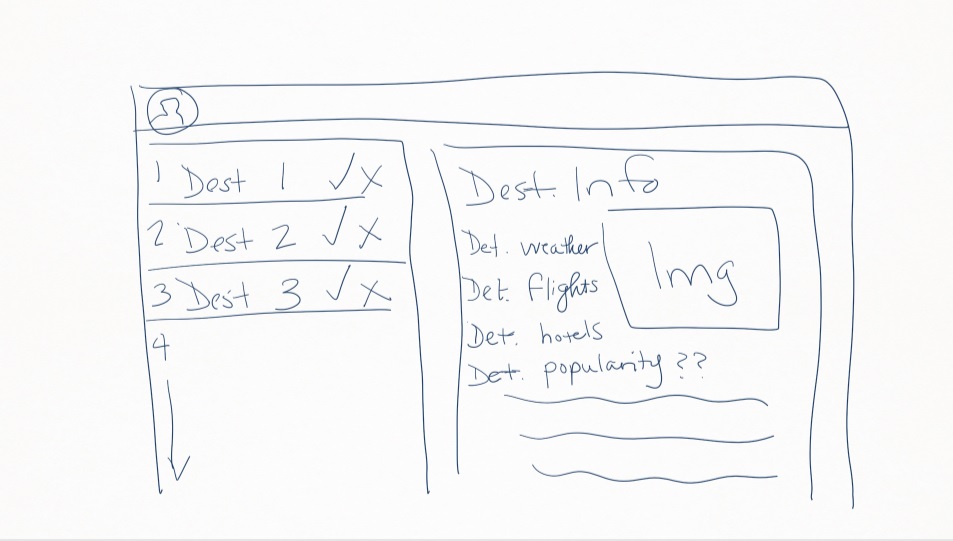 1 Dest 1 ✓ X
2 Dest 2 ✓ X
3 Dest 3 ✓ X
4
Dest. Info
Det. weather
Det. flights
Det. hotels
Det. popularity ??
Img